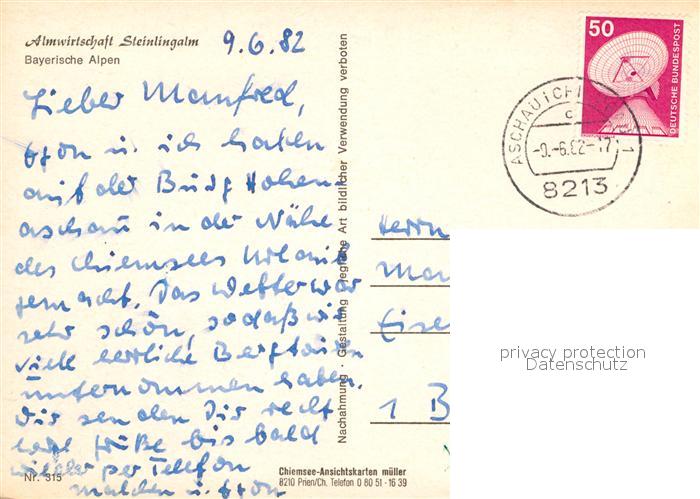 Almwirtschaft Steinlingalm
Bayerische Alpen
9.6.82
Lieber Manfred,
u. ich haben
auf der Burg Hohen
aschau in der Nähe
des Chiemsees Urlaub
gemacht. Das Wetter war
sehr schön, sodaß wir
viele herrliche Bergtouren
unternommen haben.
Wir senden Dir recht
Grüße bis bald
wieder per Telefon
u.
Nr. 315
Nachahmung · Gestaltung jegliche Art bildlicher Verwendung verboten
Chiemsee-Ansichtskarten müller
8210 Prien/Ch. Telefon 0 80 51 - 16 39
50
DEUTSCHE BUNDESPOST
ASCHAU i CHIEMGAU 1
c
-9.-6.82-17
8213
Herrn
Man
Eise
1 B
privacy protection
Datenschutz